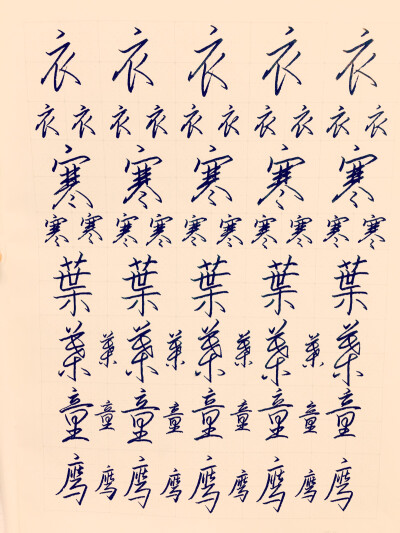 衣衣衣衣衣
衣衣衣衣衣衣衣衣衣衣
寒寒寒寒寒
寒寒寒寒寒寒寒寒寒寒
葉葉葉葉葉
葉葉葉葉葉葉葉葉葉
童童童童童童童童童